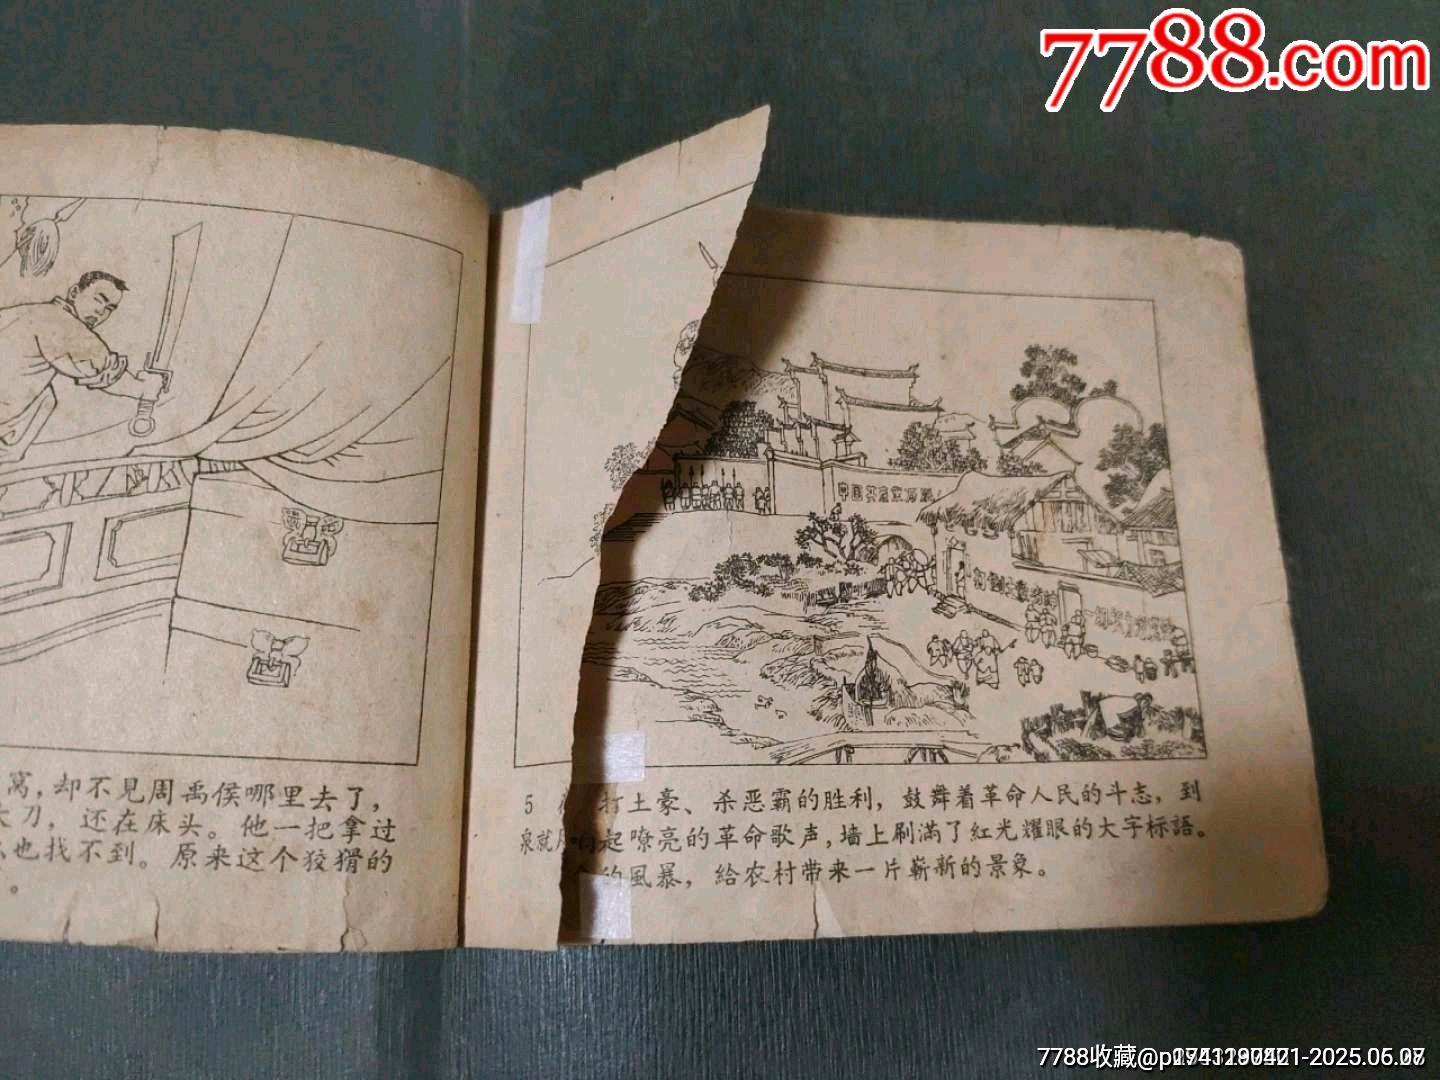 7788.com
窝,却不見周禹侯哪里去了,
大刀,还在床头。他一把拿过
么也找不到。原来这个狡猾的
。
5 打土豪、杀恶霸的胜利,鼓舞着革命人民的斗志,到
起嘹亮的革命歌声,墙上刷滿了紅光耀眼的大字标語。
的風暴,給农村带来一片嶄新的景象。
泉就
7788收藏